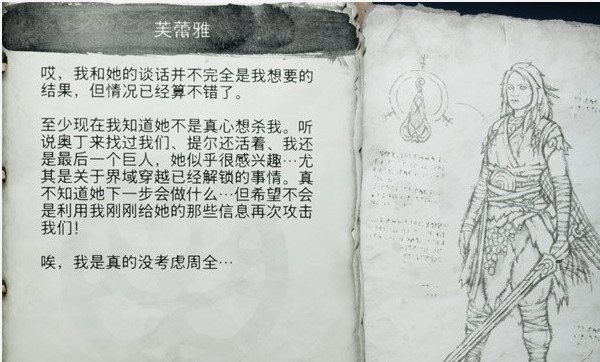 芙蕾雅
哎，我和她的谈话并不完全是我想要的
结果，但情况已经算不错了。
至少现在我知道她不是真心想杀我。听
说奥丁来找过我们、提尔还活着、我还
是最后一个巨人，她似乎很感兴趣…尤
其是关于界域穿越已经解锁的事情。真
不知道她下一步会做什么…但希望不会
是利用我刚刚给她的那些信息再次攻击
我们！
唉，我是真的没考虑周全…